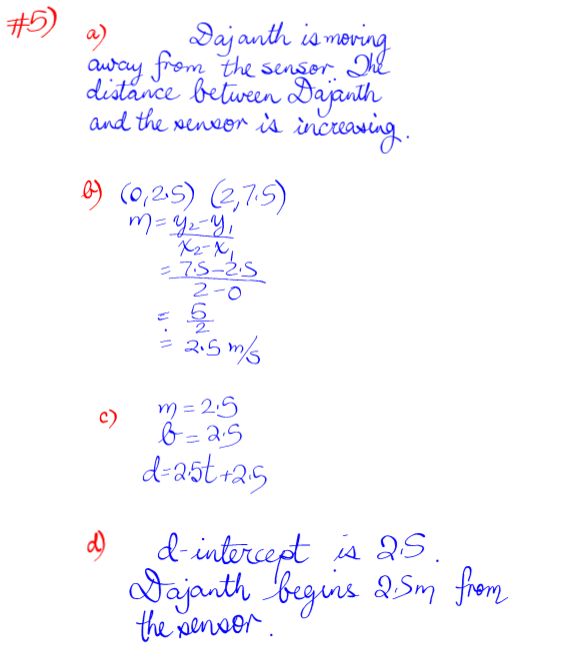 #5)
a) Dajanth is moving
away from the sensor. The
distance between Dajanth
and the sensor is increasing.
b) (0,2.5) (2,7.5)
m = y₂-y₁
x₂-x₁
= 7.5-2.5
2-0
= 5
2
= 2.5 m/s
c) m = 2.5
b = 2.5
d=2.5t+2.5
d) d-intercept is 2.5.
Dajanth begins 2.5m from
the sensor.